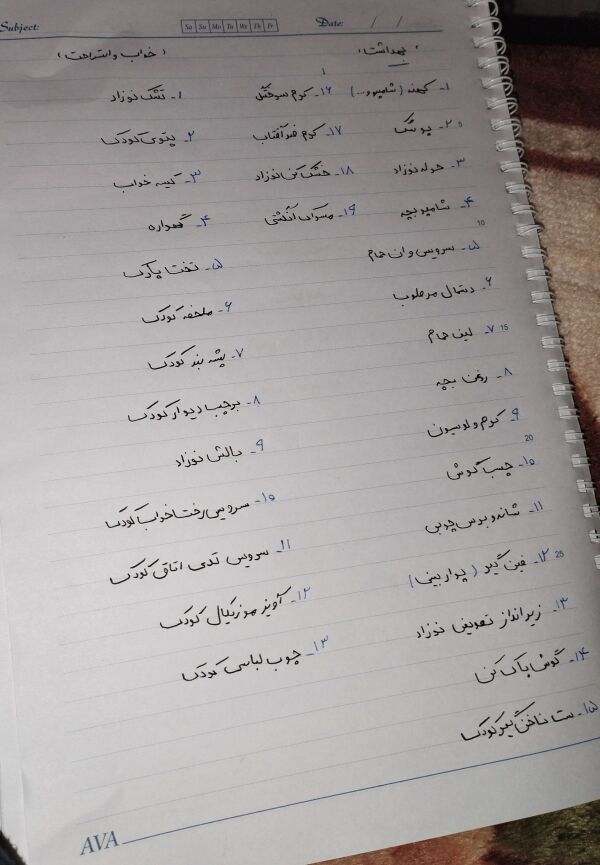 Subject:
Sa Su Mo Tu We Th Fr
Date: / /
(بهداشت)
۱- کهنه (شامپو و...)
۲- پوشک
۳- حوله نوزاد
۴- شامپو بچه
۵- سرویس وان حمام
۶- دستمال مرطوب
۷- لیف حمام
۸- روغن بچه
۹- کرم و لوسیون
۱۰- چسب گوش
۱۱- شانه و برس چوبی
۱۲- فین گیر (پوار بینی)
۱۳- زیرانداز تعویض نوزاد
۱۴- گوش پاک کن
۱۵- ست ناخن گیر کودک
۱۶- کرم سوختگی
۱۷- کرم ضد آفتاب
۱۸- خشک کن نوزاد
۱۹- مسواک انگشتی
(خواب و استراحت)
۱- تشک نوزاد
۲- پتوی کودک
۳- کیسه خواب
۴- گهواره
۵- تخت پارک
۶- ملحفه کودک
۷- پشه بند کودک
۸- برچسب دیوار کودک
۹- بالش نوزاد
۱۰- سرویس رختخواب کودک
۱۱- سرویس تدی اتاق کودک
۱۲- آویز موزیکال کودک
۱۳- چوب لباسی کودک
5
10
15
20
25
AVA